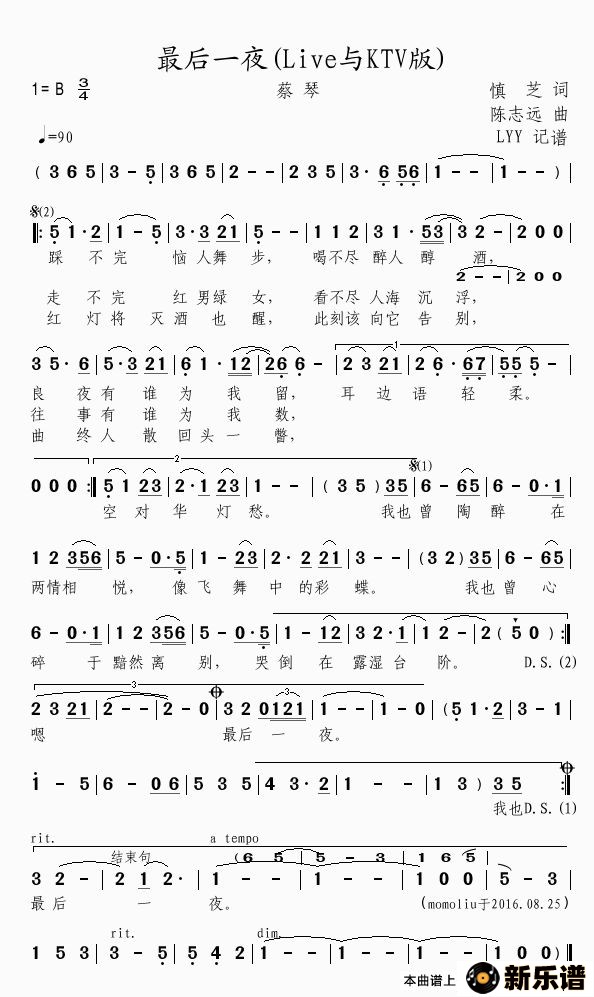 最后一夜(Live与KTV版)
1=B 3/4 蔡琴 慎芝词
陈志远 曲
♩=90 LYY 记谱
( 3 6 5 | 3 - 5 | 3 6 5 | 2 - - | 2 3 5 | 3· 6 56 | 1 - - | 1 - - ) |
𝄋(2)
‖: 5 1·2 | 1 - 5 | 3·3 21 | 5 - - | 1 1 2 | 3 1·53 | 3 2 - | 2 0 0
踩不完 恼人舞步, 喝不尽醉人醇酒,
2 - - | 2 0 0
走不完 红男绿女, 看不尽人海沉浮,
红灯将灭酒也醒, 此刻该向它告别,
1
3 5·6 | 5·3 21 | 6 1·12 | 26 6 - | 2 3 21 | 2 6·67 | 55 5 -
良夜有谁为我留, 耳边语轻柔。
往事有谁为我数,
曲终人散回头一瞥,
2 𝄋(1)
0 0 0 :‖ 5 1 23 | 2·1 23 | 1 - - | ( 3 5 ) 35 | 6 - 65 | 6 - 0·1 |
空对华灯愁。 我也曾陶醉在
1 2 356 | 5 - 0·5 | 1 - 23 | 2· 2 21 | 3 - - | (3 2) 35 | 6 - 65
两情相悦, 像飞舞中的彩蝶。 我也曾心
6 - 0·1 | 1 2 356 | 5 - 0·5 | 1 - 12 | 3 2·1 | 1 2 - | 2 ( 5 0 ) :‖
碎于黯然离别, 哭倒在露湿台阶。 D.S.(2)
3
2 3 21 | 2 - - | 2 - 0 | 3 2 0121 | 1 - - | 1 - 0 | (5 1·2 | 3 - 1
3
嗯 最后一夜。
1 - 5 | 6 - 06 | 5 3 5 | 4 3·2 | 1 - - | 1 3 ) 3 5 :‖
我也D.S.(1)
rit. a tempo
结束句 (6 5 | 5 - 3 | 1 6 5
3 2 - | 2 1 2· | 1 - - | 1 - - | 1 0 0 | 5 - 3
最后一夜。 (momoliu于2016.08.25)
rit. dim.
1 5 3 | 3 - 5 | 5 4 2 | 1 - - | 1 - - | 1 0 0 ) ‖
本曲谱上 新乐谱